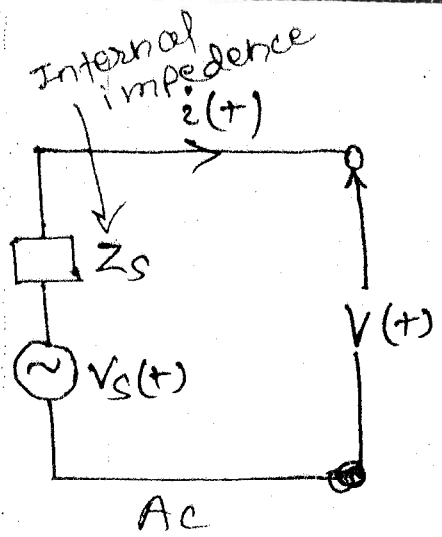 Internal
impedence
i(t)
Zs
V(t)
Vs(t)
Ac